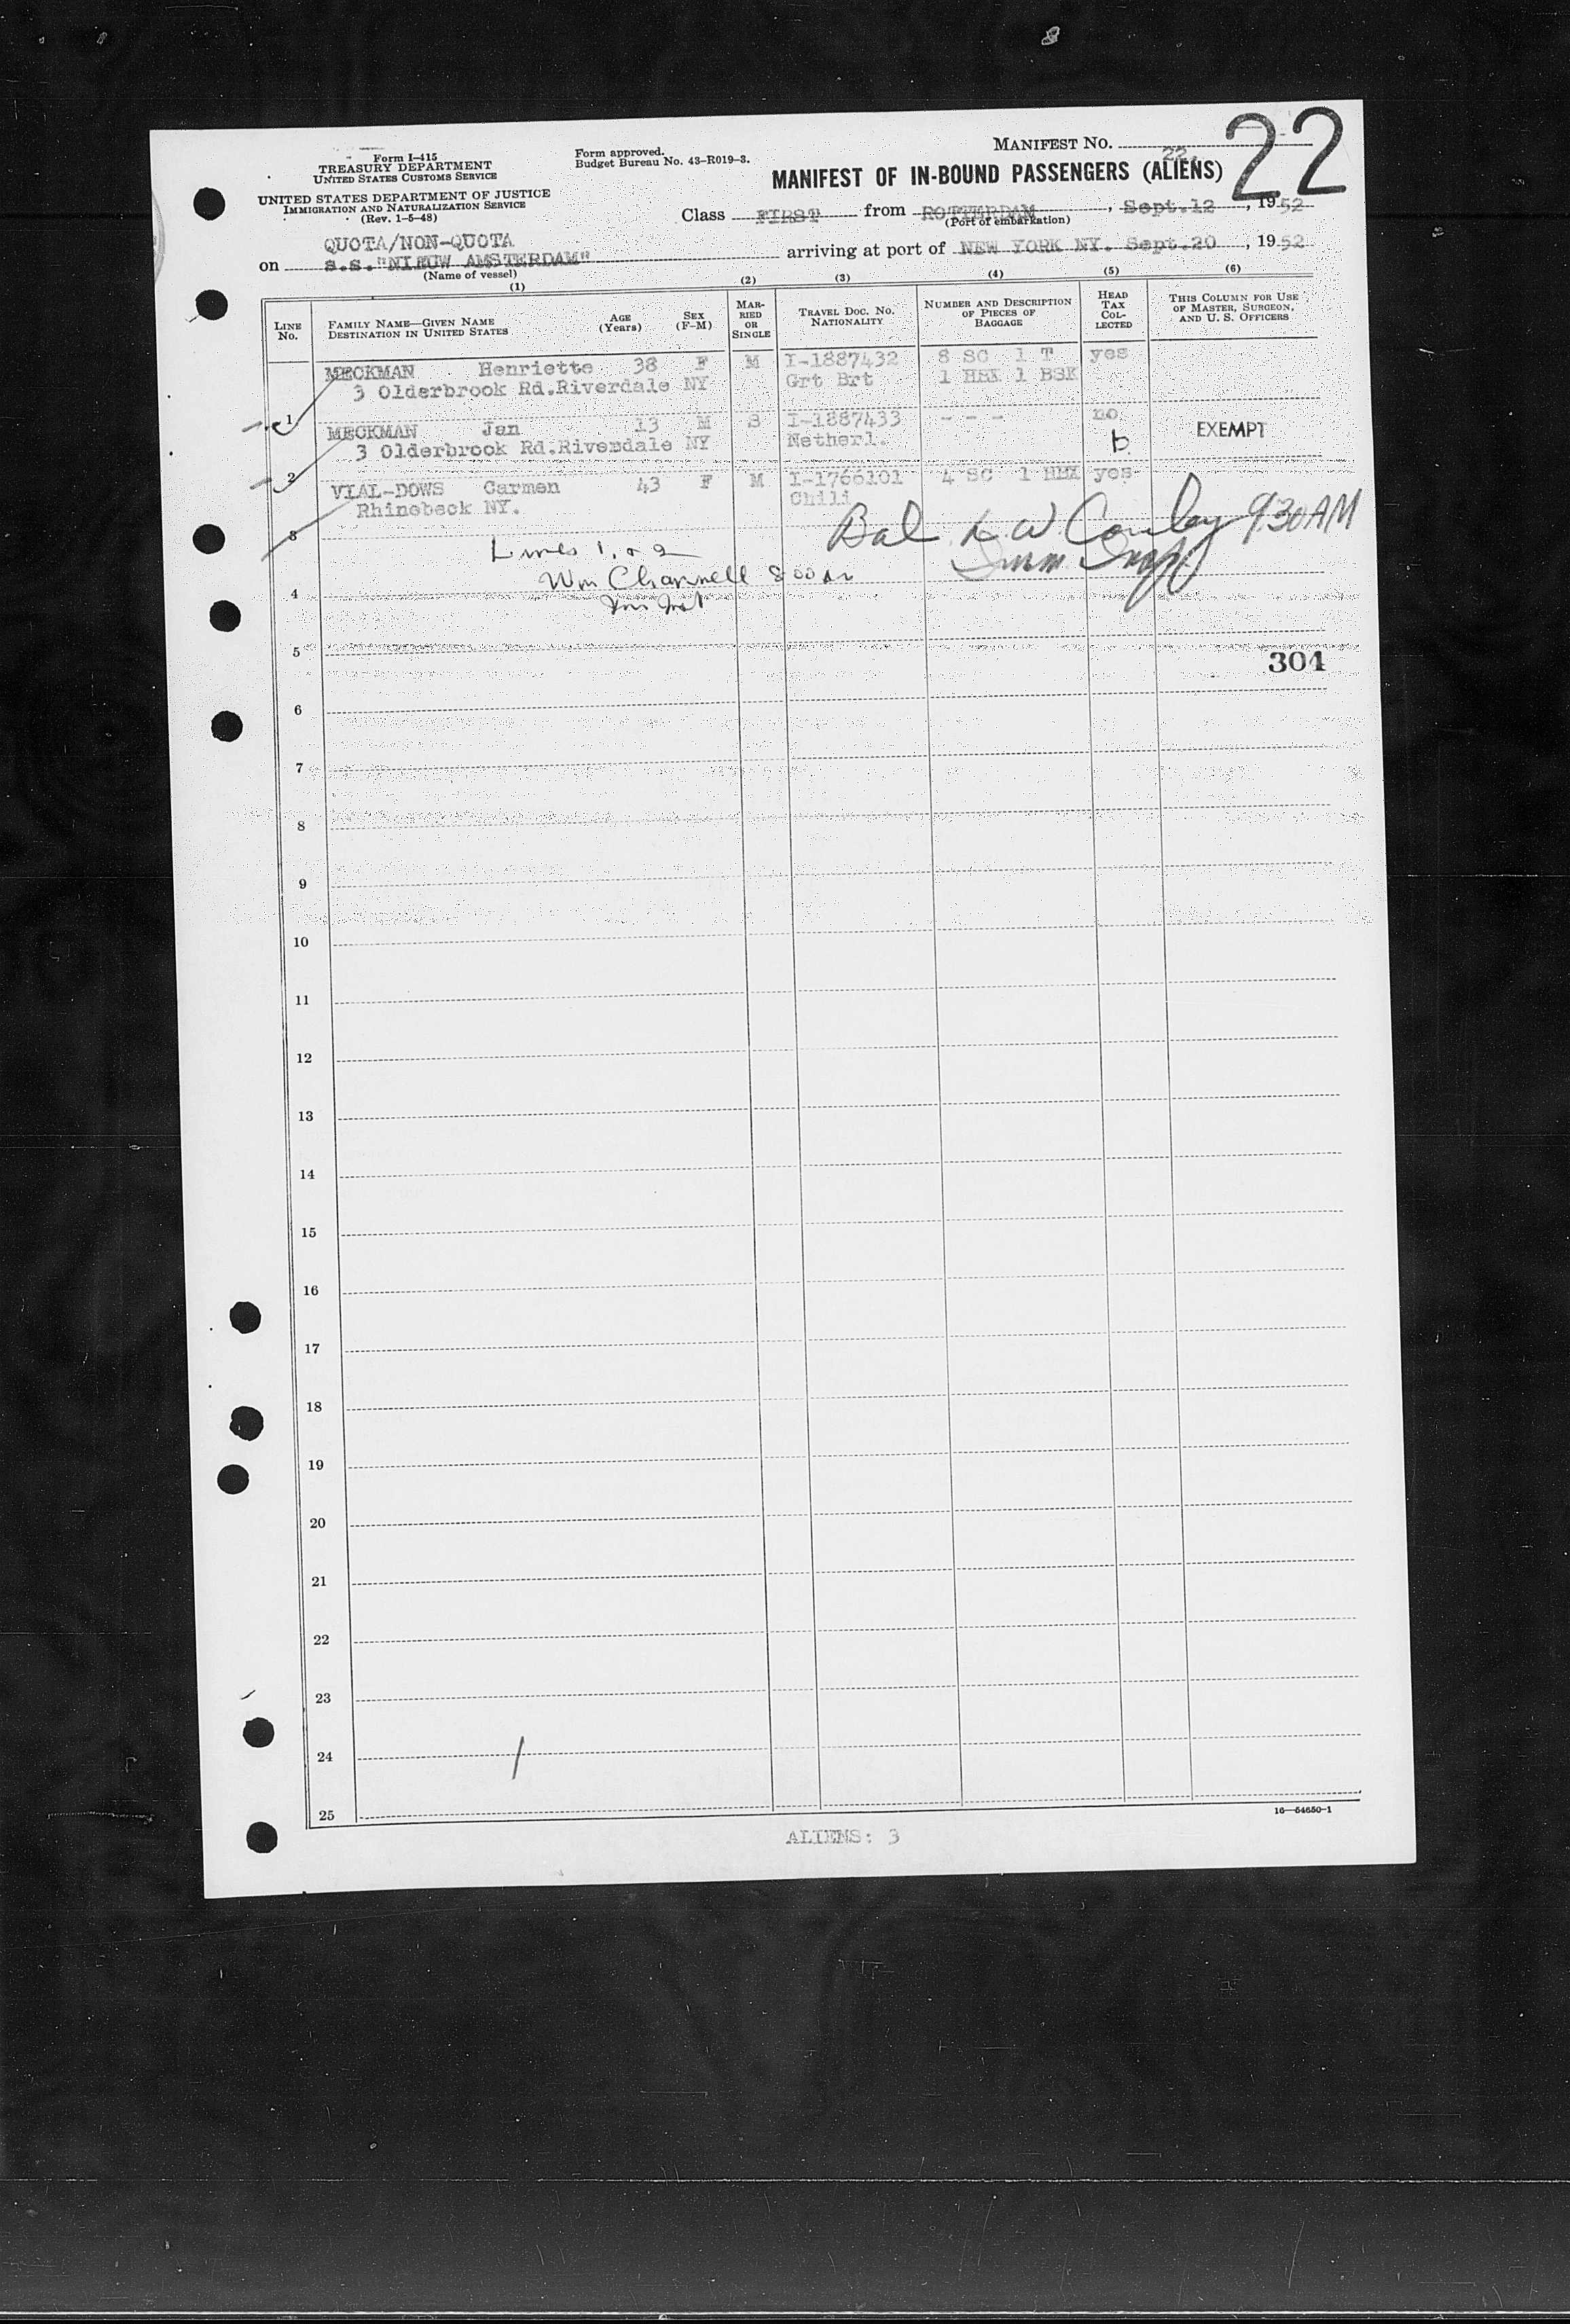 Form I-415
TREASURY DEPARTMENT
UNITED STATES CUSTOMS SERVICE
UNITED STATES DEPARTMENT OF JUSTICE
IMMIGRATION AND NATURALIZATION SERVICE
(Rev. 1-5-48)
Form approved.
Budget Bureau No. 43-R019-3.
MANIFEST NO. 22
22
MANIFEST OF IN-BOUND PASSENGERS (ALIENS)
Class FIRST from ROTTERDAM, Sept.12, 1952
(Port of embarkation)
QUOTA/NON-QUOTA
on s.s."NIEUW AMSTERDAM" arriving at port of NEW YORK NY. Sept.20, 1952
(Name of vessel)
(1) (2) (3) (4) (5) (6)
LINE NO.
FAMILY NAME—GIVEN NAME
DESTINATION IN UNITED STATES
AGE (Years)
SEX (F-M)
MARRIED OR SINGLE
TRAVEL DOC. NO.
NATIONALITY
NUMBER AND DESCRIPTION OF PIECES OF BAGGAGE
HEAD TAX COLLECTED
THIS COLUMN FOR USE OF MASTER, SURGEON, AND U. S. OFFICERS
MECKMAN Henriette 38 F M I-1887432 8 SC 1 T yes
3 Olderbrook Rd.Riverdale NY Grt Brt 1 HBX 1 BSK
1
MECKMAN Jan 13 M S I-1887433 - - - no
3 Olderbrook Rd.Riverdale NY Netherl. EXEMPT
2
VIAL-DOWS Carmen 43 F M I-1766101 4 SC 1 HBX yes
Rhinebeck NY. Chili
3
Bal K W Conley 930AM
Imm Insp
Lines 1, & 2
Wm Channell 8 00 Am
Imm Inst
4
5
304
6
7
8
9
10
11
12
13
14
15
16
17
18
19
20
21
22
23
24
25
16—54650-1
ALIENS: 3